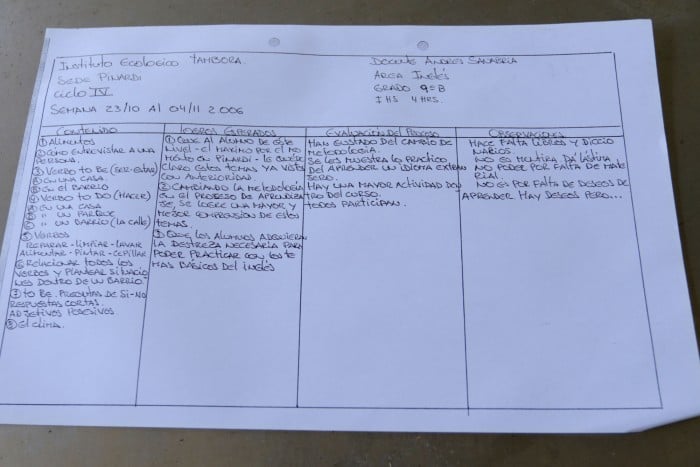 Instituto Ecologico TAMBORA.
SEDE PINARDI
CICLO IV
SEMANA 23/10 AL 04/11 2006
DOCENTE ANDRES SANABRIA
AREA INGLÉS
GRADO 9=B
IHS 4 HRS.
CONTENIDO
① ALIMENTOS
② COMO ENTREVISTAR A UNA
PERSONA.
③ VERBO TO BE (SER-ESTAR)
EN UNA CASA.
EN EL BARRIO
④ VERBO TO DO (HACER)
EN UNA CASA
" UN PARQUE
" UN BARRIO (LA CALLE)
VERBOS
REPARAR - LIMPIAR - LAVAR
ALIMENTAR - PINTAR - CEPILLAR
⑥ RELACIONAR TODOS LOS
VERBOS Y PLANTEAR SITUACIO
NES DENTRO DE UN BARRIO
⑦ TO BE. PREGUNTAS DE SI-NO
RESPUESTAS CORTAS.
ADJETIVOS POSESIVOS
⑧ El CLIMA.
LOGROS ESPERADOS
① QUE AL ALUMNO DE ESTE
NIVEL - EL MAXIMO POR EL MO
MENTO EN PINARDI - LE QUEDE
CLARO ESTOS TEMAS YA VISTOS
CON ANTERIORIDAD
② CAMBIANDO LA METODOLOGIA
EN EL PROCESO DE APRENDIZA
JE, SE LOGRE UNA MAYOR Y
MEJOR COMPRENSION DE ESTOS
TEMAS.
③ QUE LOS ALUMNOS ADQUIERAN
LA DESTREZA NECESARIA PARA
PODER PRACTICAR CON LOS TE
MAS BÁSICOS DEL INGLÉS
EVALUACION DEL PROCESO
HAN GUSTADO DEL CAMBIO DE
METODOLOGIA.
SE LES MUESTRA LO PRACTICO
DEL APRENDER UN IDIOMA EXTRAN
JERO.
HAY UNA MAYOR ACTIVIDAD DEN
TRO DEL CURSO.
TODOS PARTICIPAN.
OBSERVACIONES
HACE FALTA LIBROS Y DICCIO
NARIOS.
NO ES MENTIRA DA LÁSTIMA
NO PODER POR FALTA DE MATE
RIAL.
NO ES POR FALTA DE DESEOS DE
APRENDER HAY DESEOS PERO...